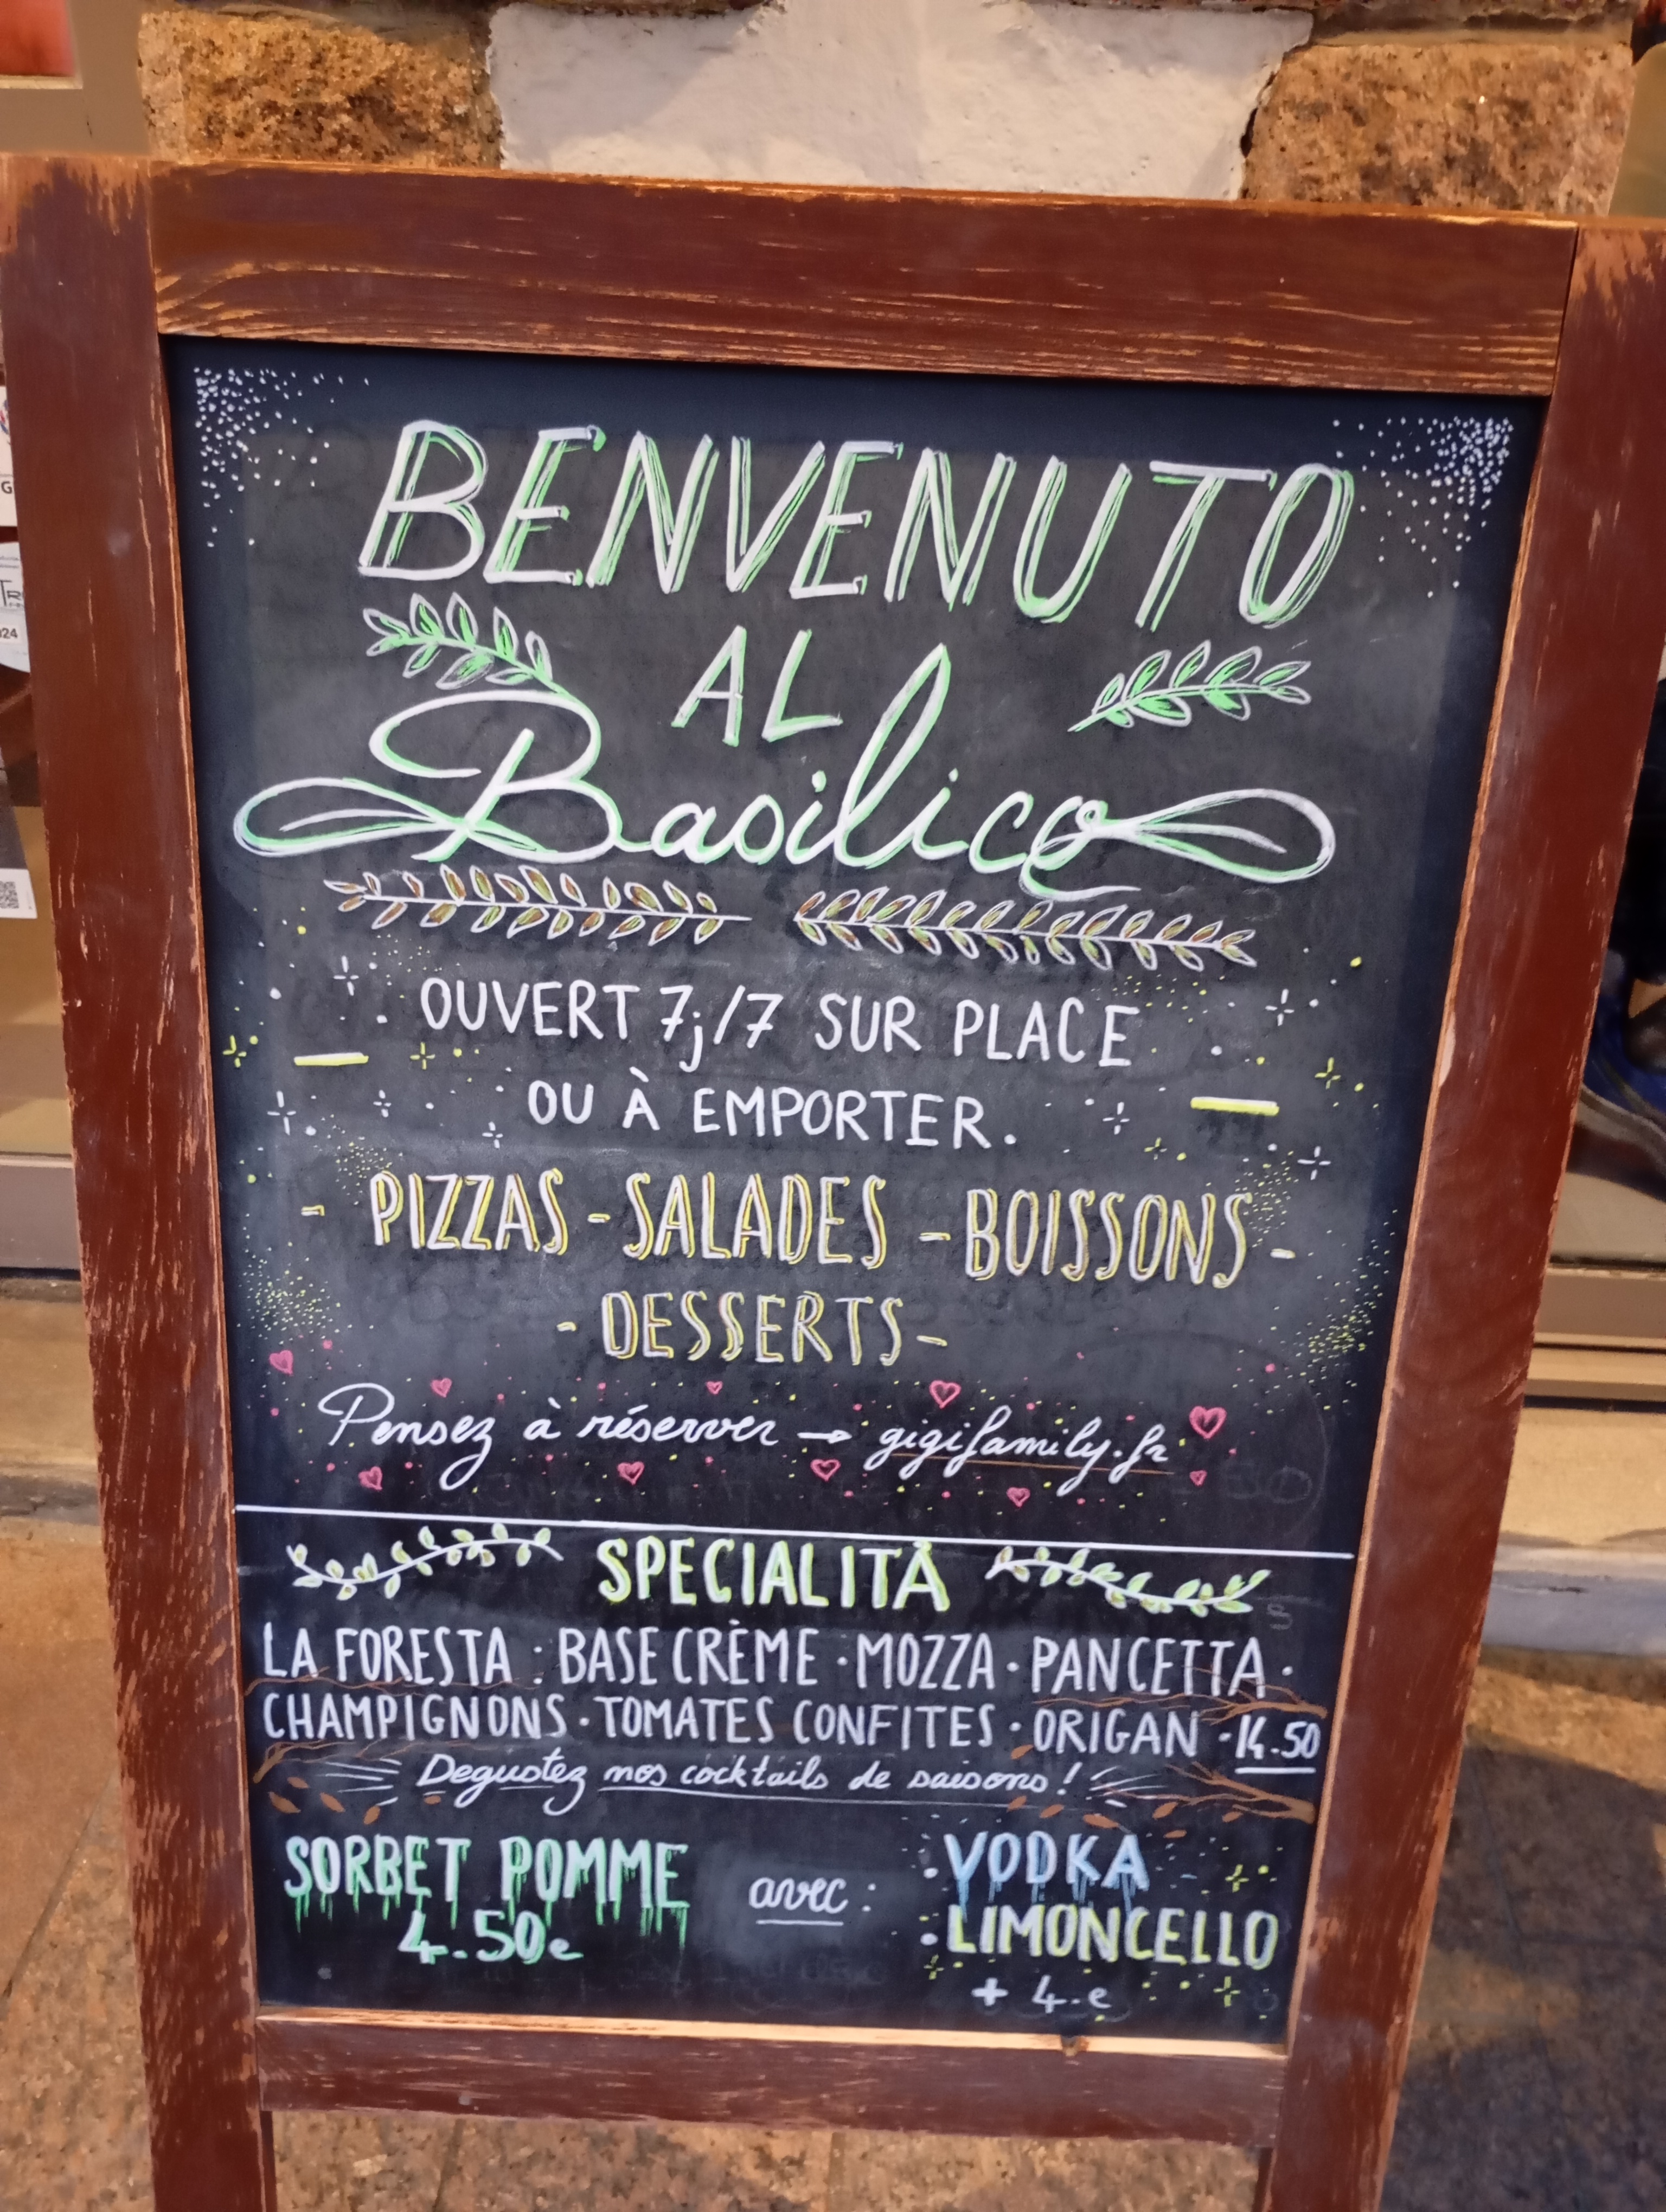 BENVENUTO
AL
Basilico
OUVERT 7j/7 SUR PLACE
OU À EMPORTER.
- PIZZAS - SALADES - BOISSONS -
- DESSERTS -
Pensez à réserver → gigifamily.fr
SPECIALITÀ
LA FORESTA : BASE CRÈME · MOZZA · PANCETTA ·
CHAMPIGNONS · TOMATES CONFITES · ORIGAN · 14.50
Degustez nos cocktails de saisons !
SORBET POMME avec : · VODKA
4.50e · LIMONCELLO
+ 4.e